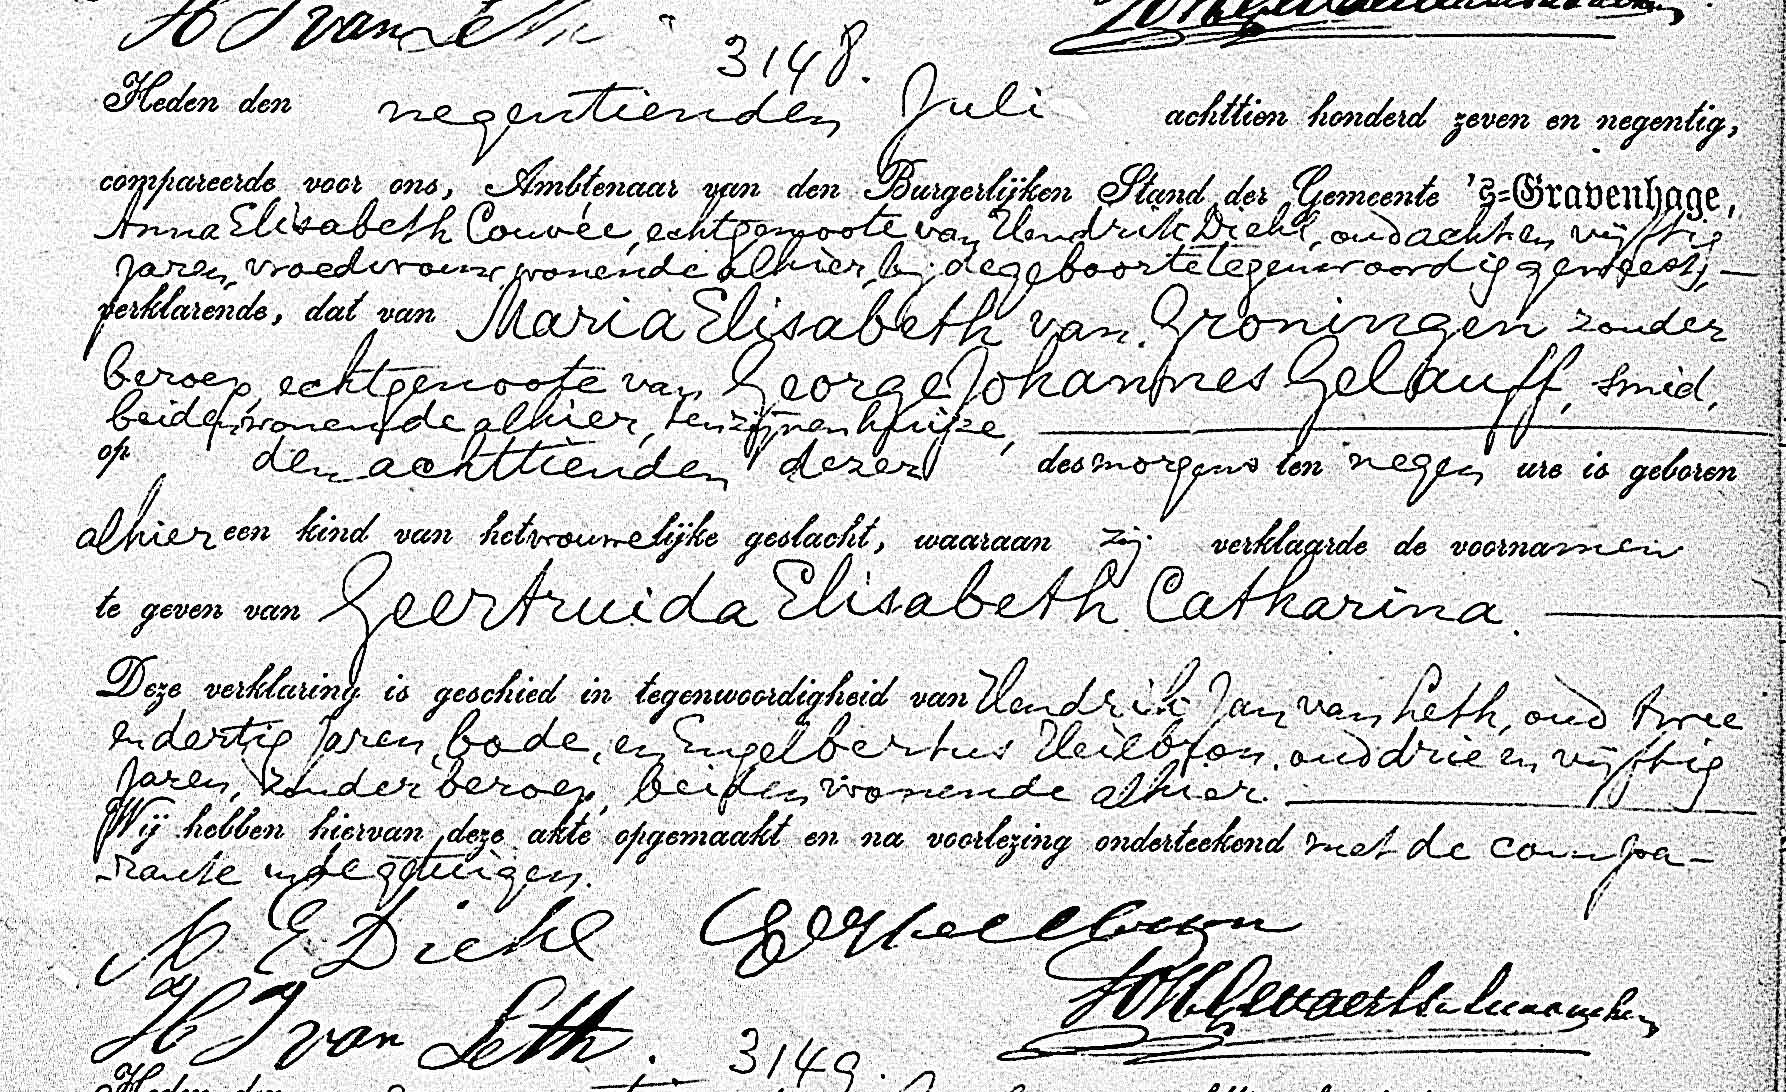 H J van Leth
3148.
Heden den negentienden Juli achttien honderd zeven en negentig,
compareerde voor ons, Ambtenaar van den Burgerlijken Stand der Gemeente 's=Gravenhage,
Anna Elisabeth Couvée, echtgenoote van Hendrik Diehl, oud acht en vijftig
jaren, vroedvrouw, wonende alhier, bij de geboorte tegenwoordig geweest,
verklarende, dat van Maria Elisabeth van Groningen zonder
beroep, echtgenoote van George Johannes Gelauff, smid,
beiden wonende alhier, ten zijnen huize,
op den achttienden dezer des morgens ten negen ure is geboren
alhier een kind van het vrouwelijke geslacht, waaraan zij verklaarde de voornamen
te geven van Geertruida Elisabeth Catharina.
Deze verklaring is geschied in tegenwoordigheid van Hendrik Jan van Leth, oud twee
en dertig jaren, bode, en Engelbertus Heilbron, oud drie en vijftig
jaren, zonder beroep, beiden wonende alhier.
Wij hebben hiervan deze akte opgemaakt en na voorlezing onderteekend met de compa-
-rante en de getuigen.
A E Diehl
H J van Leth.
3149.
Heden den